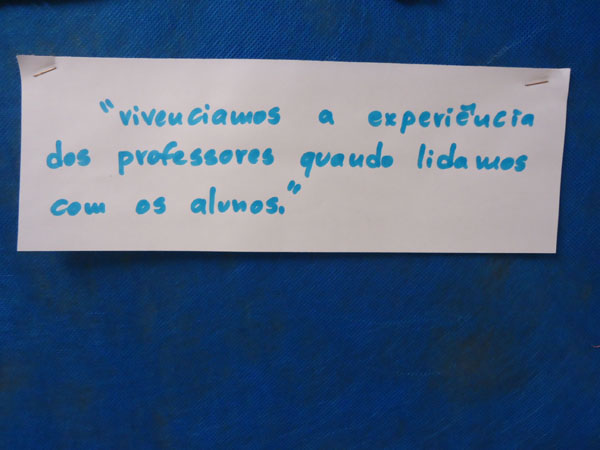 "vivenciamos a experiência
dos professores quando lidamos
com os alunos."